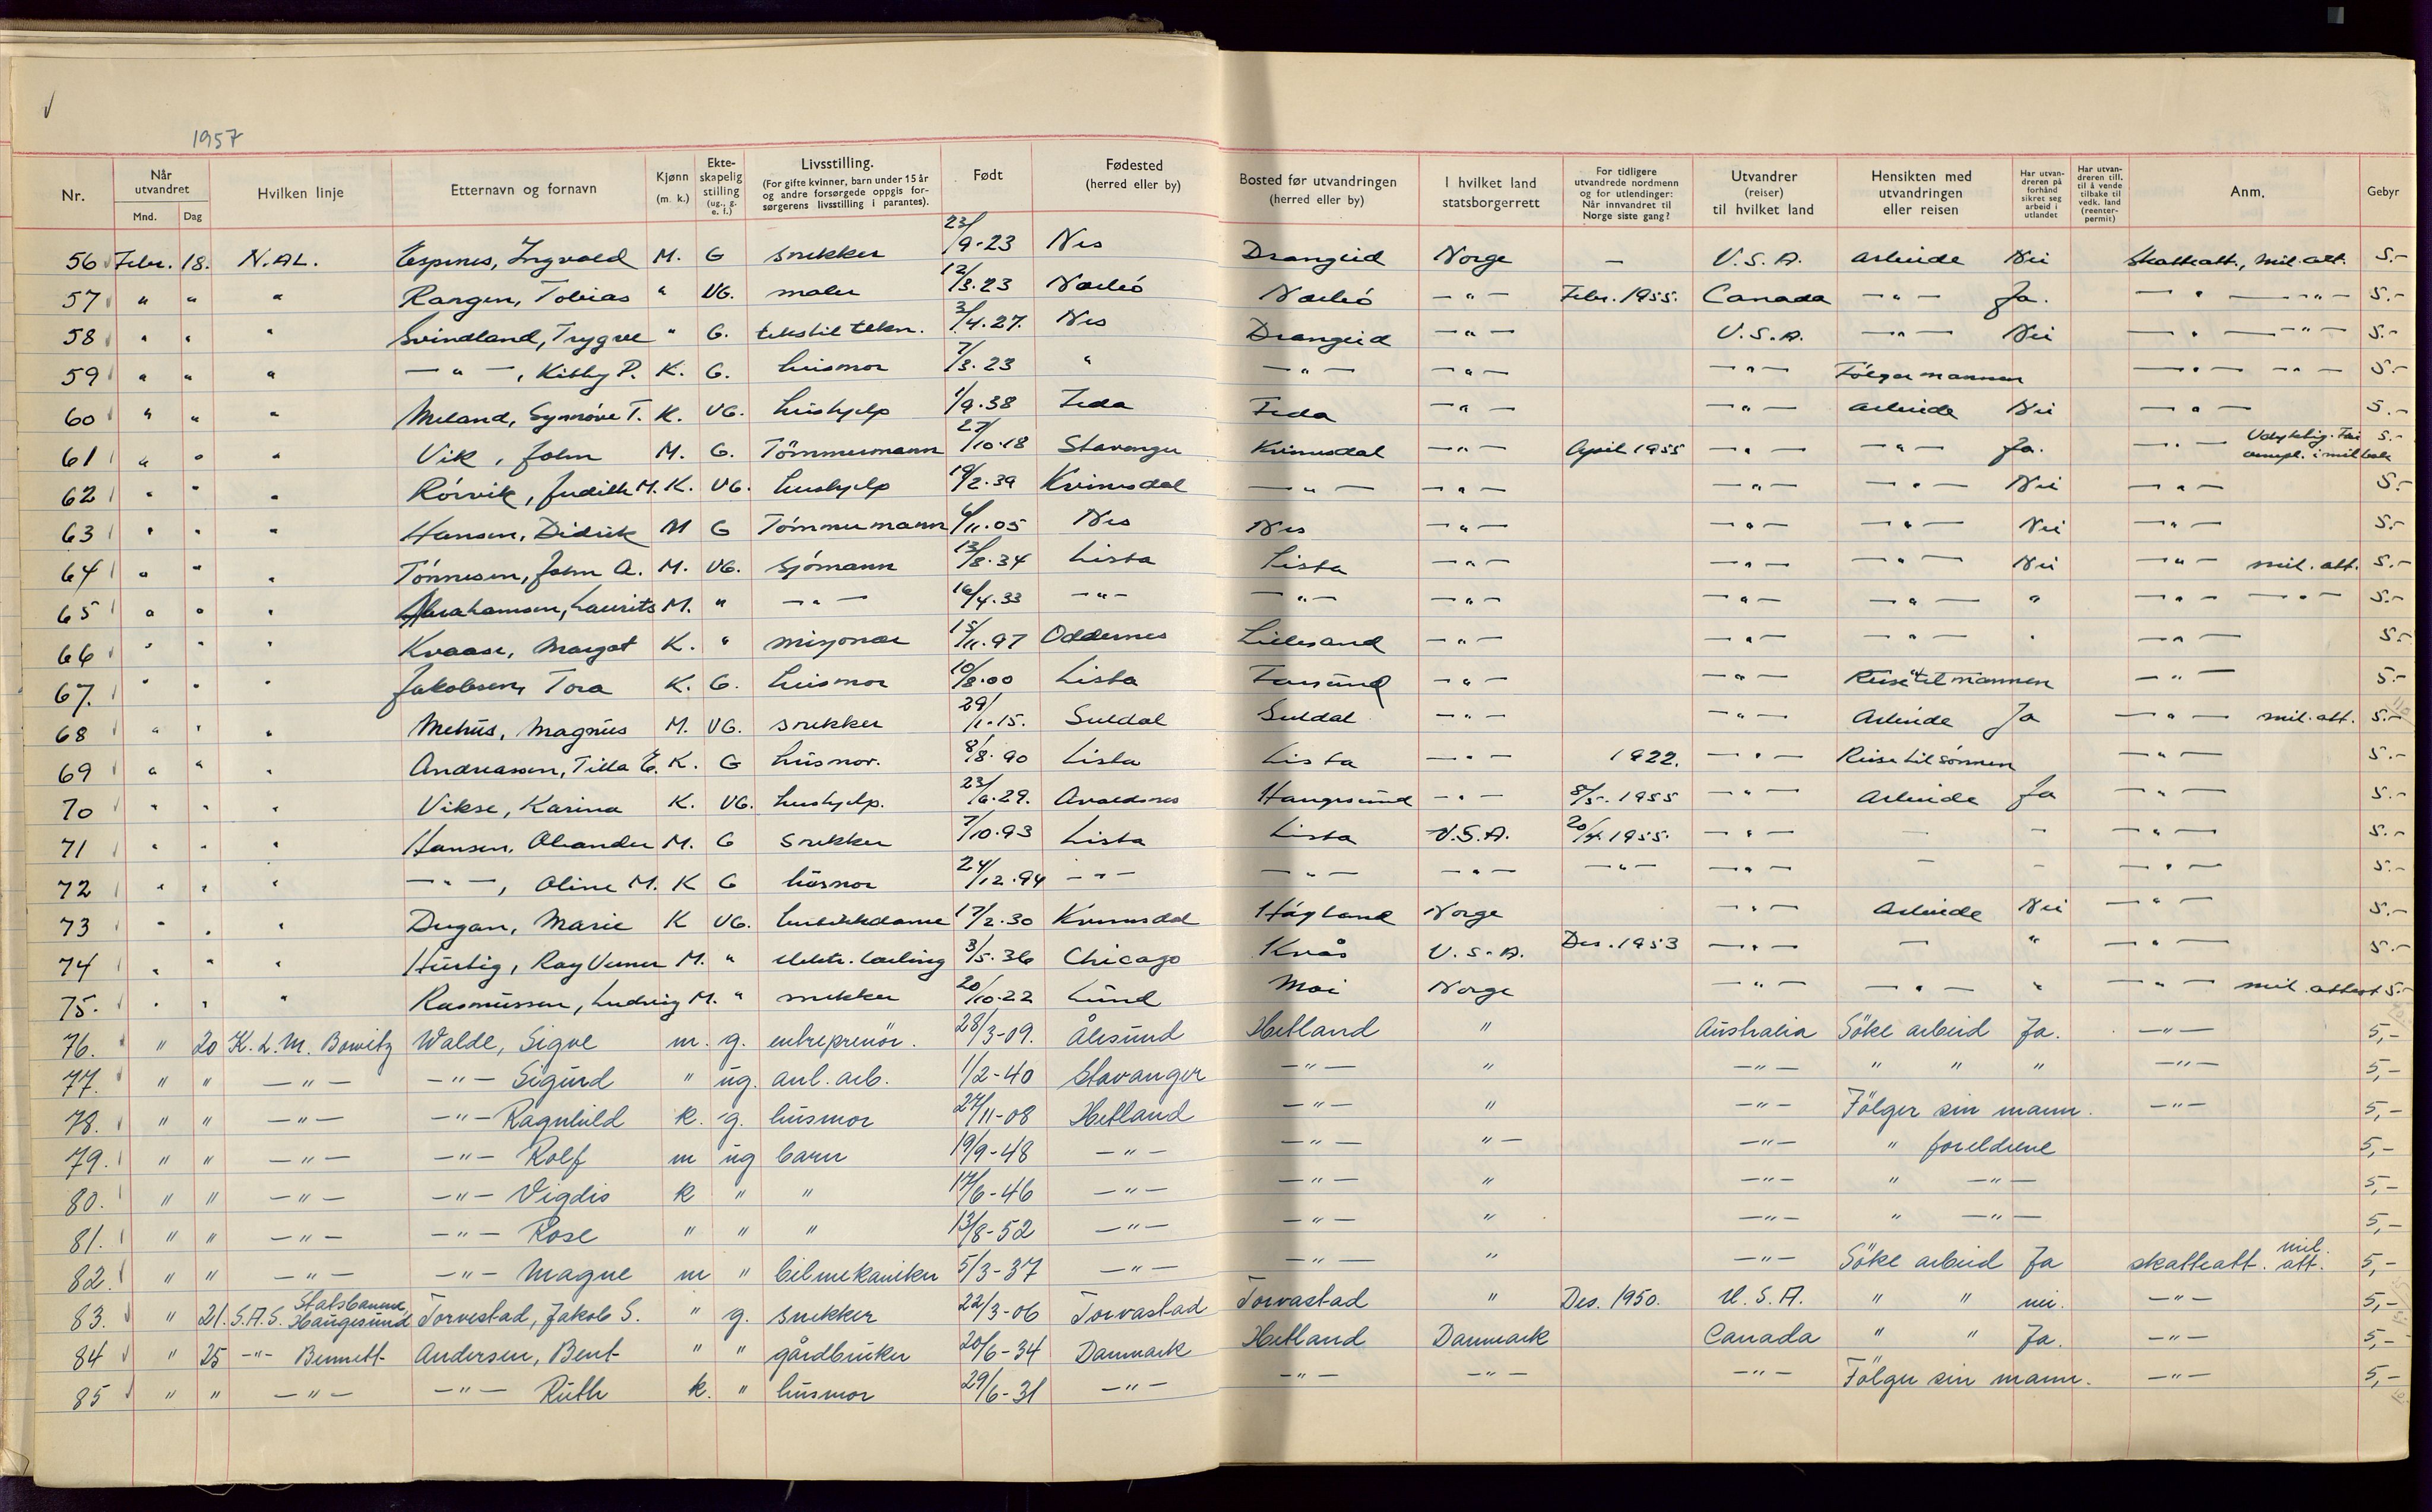 1957
Nr. Når utvandret Mnd. Dag Hvilken linje Etternavn og fornavn Kjønn (m. k.) Ekteskapelig stilling (ug., g. e. f.) Livsstilling. (For gifte kvinner, barn under 15 år og andre forsørgede oppgis forsørgerens livsstilling i parantes). Født Fødested (herred eller by) Bosted før utvandringen (herred eller by) I hvilket land statsborgerrett For tidligere utvandrede nordmenn og for utlendinger: Når innvandret til Norge siste gang? Utvandrer (reiser) til hvilket land Hensikten med utvandringen eller reisen Har utvandreren på forhånd sikret seg arbeid i utlandet Har utvandreren till. til å vende tilbake til vedk. land (reenterpermit) Anm. Gebyr
56 Febr. 18. N.A.L. Espenes, Ingvald M. G snekker 23/9-23 Nes Drangeid Norge — U.S.A. Arbeide Nei Skatteatt., mil. att. 5.-
57 " " " Rargen, Tobias " UG. maler 12/3.23 Nærbö Nærbö —"— Febr. 1955. Canada —"— Ja. —"— —"— 5.-
58 " " " Svindland, Trygve " G. tekstil tekn. 3/4.27. Nes Drangeid —"— U.S.A. —"— Nei —"— —"— 5.-
59 " " " —"—, Kitty P. K. G. husmor 7/3.23 " —"— —"— —"— Følger mannen —"— —"— 5.-
60 " " " Meland, Synnöve T. K. UG. hushjelp 1/9.38 Feda Feda —"— —"— Arbeide Nei —"— 5.-
61 " " " Vik, John M. G. Tömmermann 27/10.18 Stavanger Kvinesdal —"— April 1955 —"— —"— Ja. —"— 5.-
62 " " " Rörvik, Judith M. K. UG. hushjelp 19/2.39 Kvinesdal —"— —"— —"— —"— Nei —"— 5.-
63 " " " Hansen, Didrik M G Tömmermann 6/11.05 Nes Nes —"— —"— —"— Nei —"— 5.-
64 " " " Tönnesen, John A. M. UG. sjömann 13/8.34 Lista Lista —"— —"— —"— Nei —"— mil. att. 5.-
65 " " " Abrahamsen, Laurits M. " —"— 16/4.33 —"— —"— —"— —"— —"— " —"— —"— 5.-
66 " " " Kvaase, Margot K. " misjonær 15/11.97 Oddernes Lillesand —"— —"— —"— " —"— 5.-
67. " " " Jakobsen, Tora K. G. husmor 10/8.00 Lista Farsund —"— —"— Reise til mannen —"— 5.-
68 " " " Mehus, Magnus M. UG. snekker 29/1.15. Suldal Suldal —"— —"— Arbeide Ja —"— mil. att. 5.-
69 " " " Andreassen, Tilla E. K. G husmor. 8/8.90 Lista Lista —"— 1922. —"— Reise til sönnen —"— 5.-
70 " " " Vikse, Karina K. UG. hushjelp. 23/6.29. Avaldsnes Haugesund —"— 8/5. 1955 —"— Arbeide Ja —"— 5.-
71 " " " Hansen, Oleander M. G snekker 7/10.93 Lista Lista U.S.A. 20/4. 1955. —"— — — —"— 5.-
72 " " " —"—, Oline M. K G husmor 24/12.94 —"— —"— —"— —"— —"— — — —"— 5.-
73 " " " Dugan, Marie K UG. butikkdame 17/2.30 Kvinesdal Høyland Norge —"— Arbeide Nei —"— 5.-
74 " " " Hurtig, Ray Verner M. " elektr. lærling 3/5.36 Chicago Kvås U.S.A. Des. 1953 —"— — " —"— 5.-
75. " " " Rasmussen, Ludvig M. " snekker 20/10.22 Lund Moi Norge —"— —"— " —"— mil. attest 5.-
76. " 20 K.L.M. Bowitz Walde, Sigve m. g. entreprenör. 28/3-09. Ålesund Hetland " Australia Söke arbeid Ja. —"— 5,-
77. " " —"— —"— Sigurd " ug. anl. arb. 1/2-40 Stavanger —"— " —"— " " " —"— 5,-
78. " " —"— —"— Ragnhild k. g. husmor 27/11-08 Hetland —"— " —"— Fölger sin mann. —"— 5,-
79. " " —"— —"— Rolf m ug barn 19/9-48 —"— —"— "— —"— " foreldrene 5,-
80. " " —"— —"— Vigdis k " " 17/6-46 —"— —"— " —"— " —"— 5,-
81. " " —"— —"— Rose " " " 13/8-52 —"— —"— " —"— " —"— 5,-
82. " " —"— —"— Magne m " bilmekaniker 5/3-37 —"— —"— " —"— Söke arbeid Ja skatteatt. mil. att. 5,-
83. " 21. S.A.S. Statsbanene, Haugesund Torvestad, Jakob S. " g. snekker 22/3-06 Torvastad Torvastad " Des. 1950. U.S.A. " " nei. —"— 5,-
84 " 25 —"— Bennett Andersen, Bent " " gårdbruker 20/6-34 Danmark Hetland Danmark Canada " " Ja. —"— 5,-
85 " " —"— —"— Ruth k. " husmor 29/6-31 —"— —"— —"— —"— Fölger sin mann. —"— 5,-